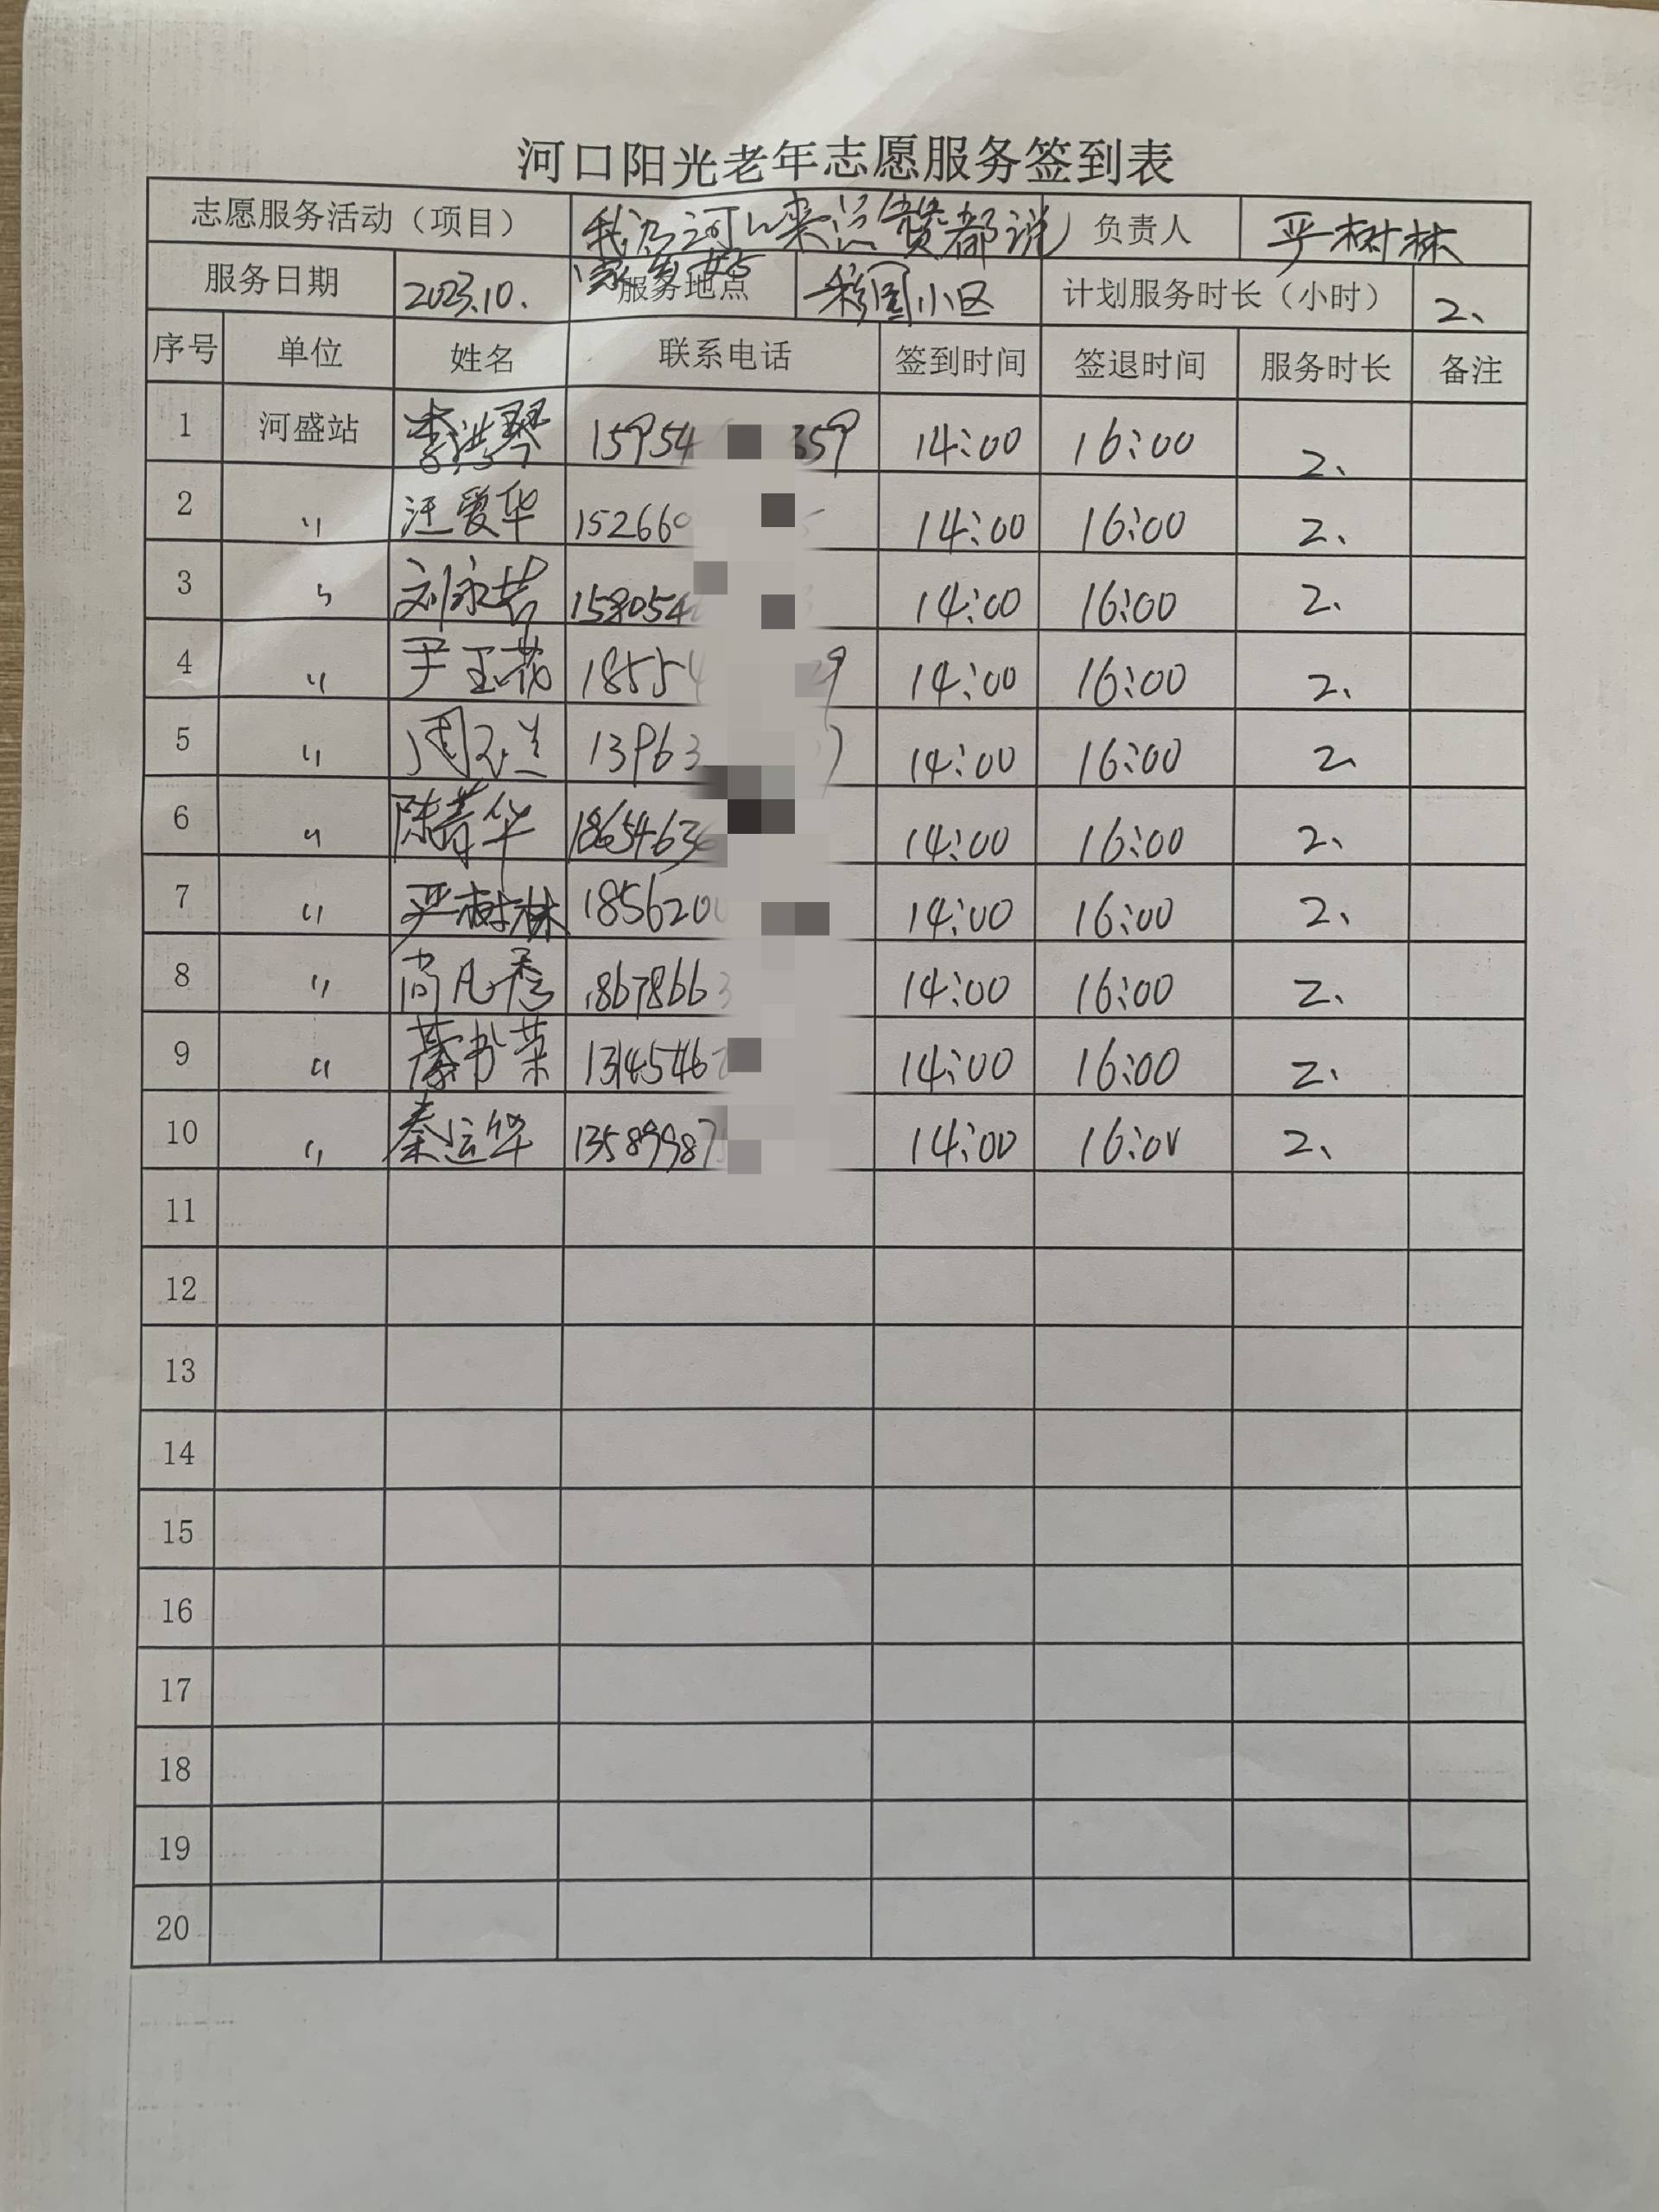 河口阳光老年志愿服务签到表
志愿服务活动（项目） 我为河口来点赞都说 负责人 严树林
家乡好
服务日期 2023.10. 服务地点 彩园小区 计划服务时长（小时） 2、
序号 单位 姓名 联系电话 签到时间 签退时间 服务时长 备注
1 河盛站 李洪琴 15954 359 14:00 16:00 2、
2 〃 汪爱华 15266 14:00 16:00 2、
3 〃 刘永芳 158054 14:00 16:00 2、
4 〃 尹玉花 1855 29 14:00 16:00 2、
5 〃 周玉兰 13963 7 14:00 16:00 2、
6 〃 陈青华 1865463 14:00 16:00 2、
7 〃 严树林 185620 14:00 16:00 2、
8 〃 尚凡秀 1867866 14:00 16:00 2、
9 〃 綦书荣 1314546 14:00 16:00 2、
10 〃 秦运华 13589987 14:00 16:00 2、
11
12
13
14
15
16
17
18
19
20